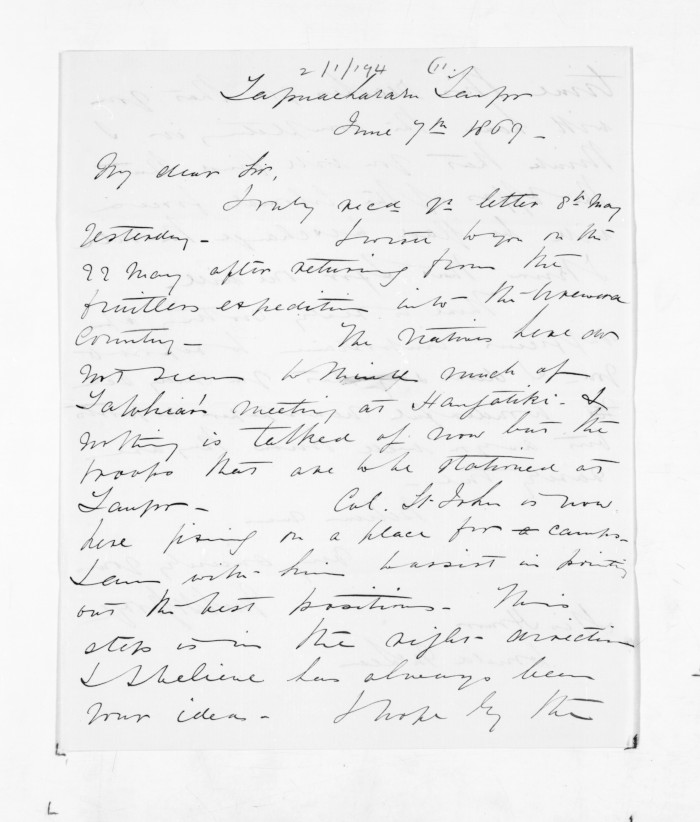 2/1/194 (11.
Tapuaeharuru Taupo
June 7th 1869 -
My dear Sir,
I only recd yr letter 8th May
Yesterday - I wrote to you on the
22 May after returning from the
fruitless expedition into the Urewera
Country - The Natives here do
not seem to think much of
Tawhiao's meeting at Hangatiki - &
nothing is talked of now but the
troops that are to be stationed at
Taupo - Col. St John is now
here fixing on a place for a camp -
I am with him to assist in pointing
out the best positions - This
step is in the right direction
& I believe has always been
your ideas - I hope by the